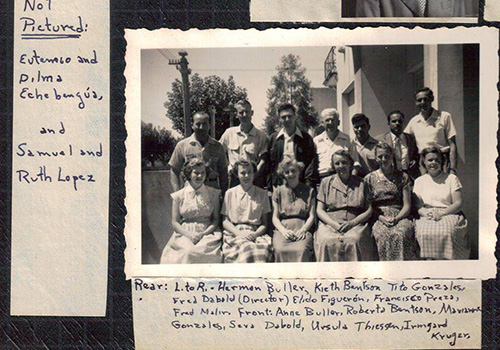 Not
Pictured:
Eutemio and
Dilma
Echebengúa,
and
Samuel and
Ruth Lopez
Rear: L. to R. - Herman Buller, Kieth Bentson Tito Gonzales
Fred Dabold (Director) Elido Figuerón, Francisco
Fred Malir Front: Anne Buller, Roberta Bentson, Marianne
Gonzales, Sara Dabold, Ursula Thiessen, Irmgard
Kruger.